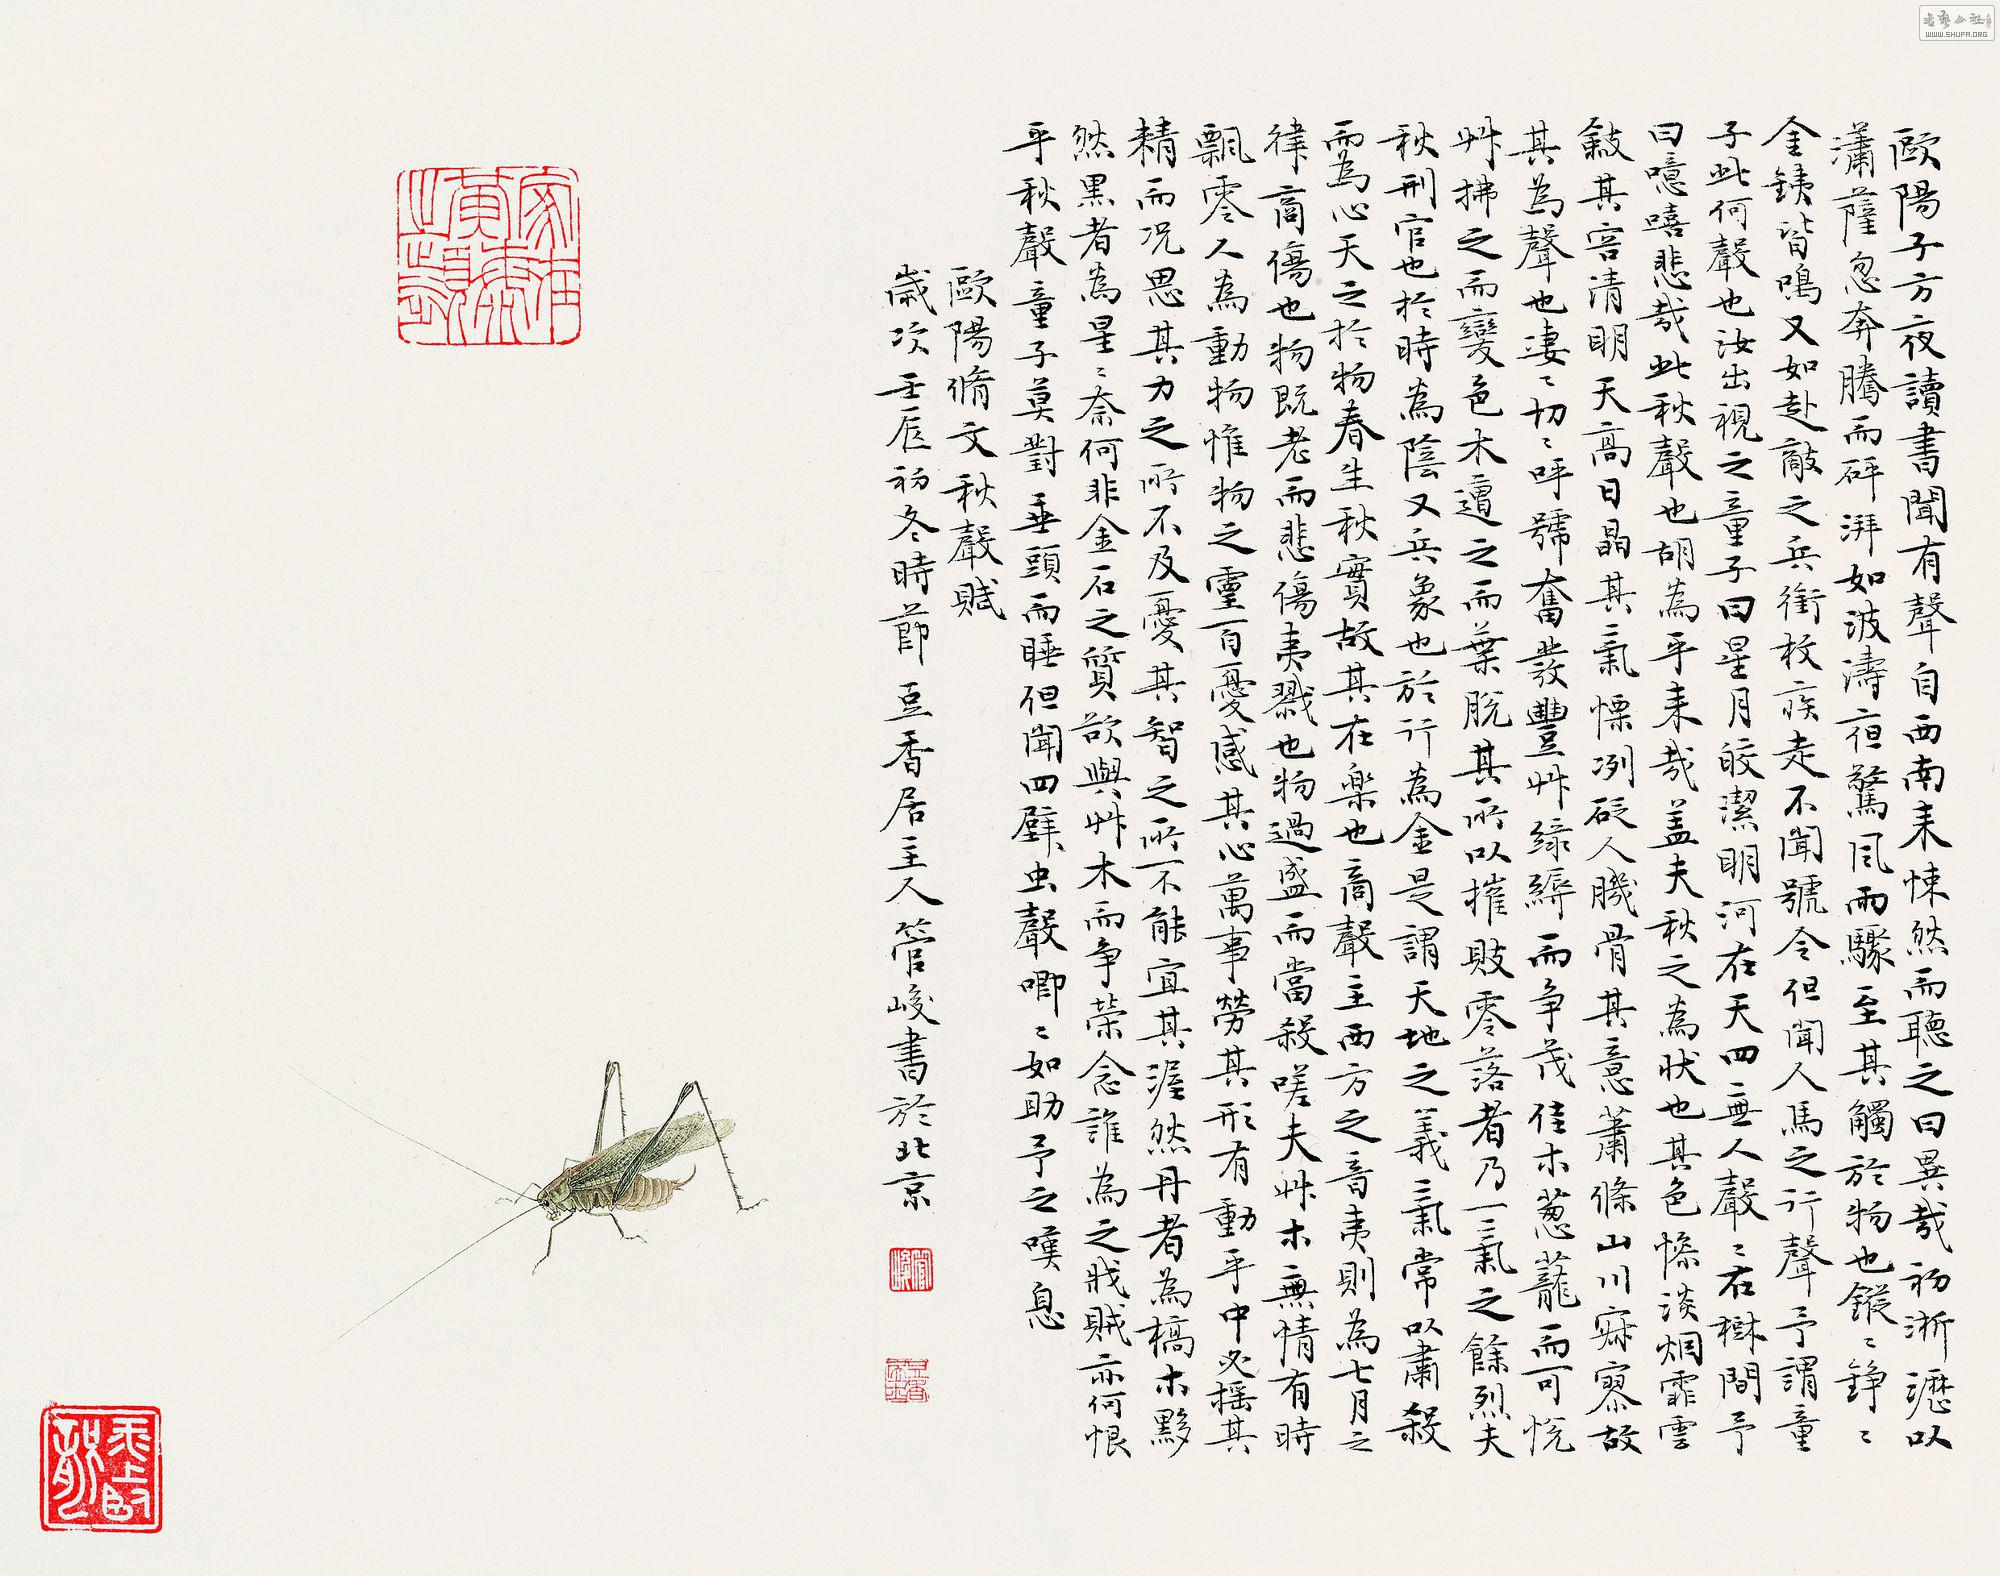 歐陽子方夜讀書聞有聲自西南来悚然而聽之曰異哉初淅瀝以
瀟薩忽奔騰而砰湃如波濤夜驚風雨驟至其觸於物也鏦〻錚〻
金銕皆鳴又如赴敵之兵銜枚疾走不聞號令但聞人馬之行聲予謂童
子此何聲也汝出視之童子曰星月皎潔明河在天四無人聲〻在樹間予
曰噫嘻悲哉此秋聲也胡為乎来哉盖夫秋之為狀也其色慘淡烟霏雲
斂其容清明天高日晶其氣慄冽砭人肌骨其意蕭條山川寂寥故
其為聲也凄〻切〻呼號奮發豐艸綠縟而争茂佳木葱蘢而可悦
艸拂之而變色木遭之而葉脱其所以摧敗零落者乃一氣之餘烈夫
秋刑官也於時為陰又兵象也於行為金是謂天地之義氣常以肅殺
而為心天之於物春生秋實故其在樂也商聲主西方之音夷則為七月之
律商傷也物既老而悲傷夷戮也物過盛而當殺嗟夫艸木無情有時
飄零人為動物惟物之靈百憂感其心萬事勞其形有動乎中必摇其
精而况思其力之所不及憂其智之所不能宜其渥然丹者為槁木黟
然黑者為星〻奈何非金石之質欲與艸木而争榮念誰為之戕賊亦何恨
乎秋聲童子莫對垂頭而睡但聞四壁虫聲唧〻如助予之嘆息
歐陽脩文秋聲賦
歲次壬辰初冬時節豆香居主人管峻書於北京
管峻
書藝公社
WWW.SHUFA.ORG